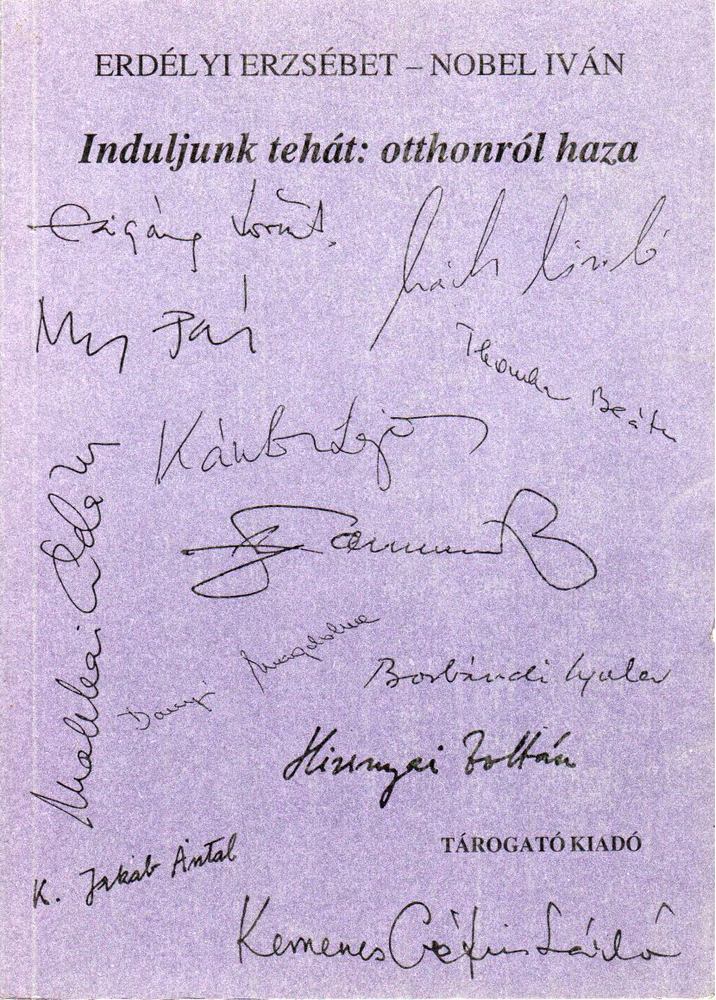 ERDÉLYI ERZSÉBET – NOBEL IVÁN
Induljunk tehát: otthonról haza
Cigány Lóránt
Nagy Pál
Thomka Beáta
Kántor Lajos
Makkai Ádám
Danyi Magdolna
Borbándi Gyula
Hizsnyai Zoltán
TÁROGATÓ KIADÓ
K. Jakab Antal
Kemenes Géfin László